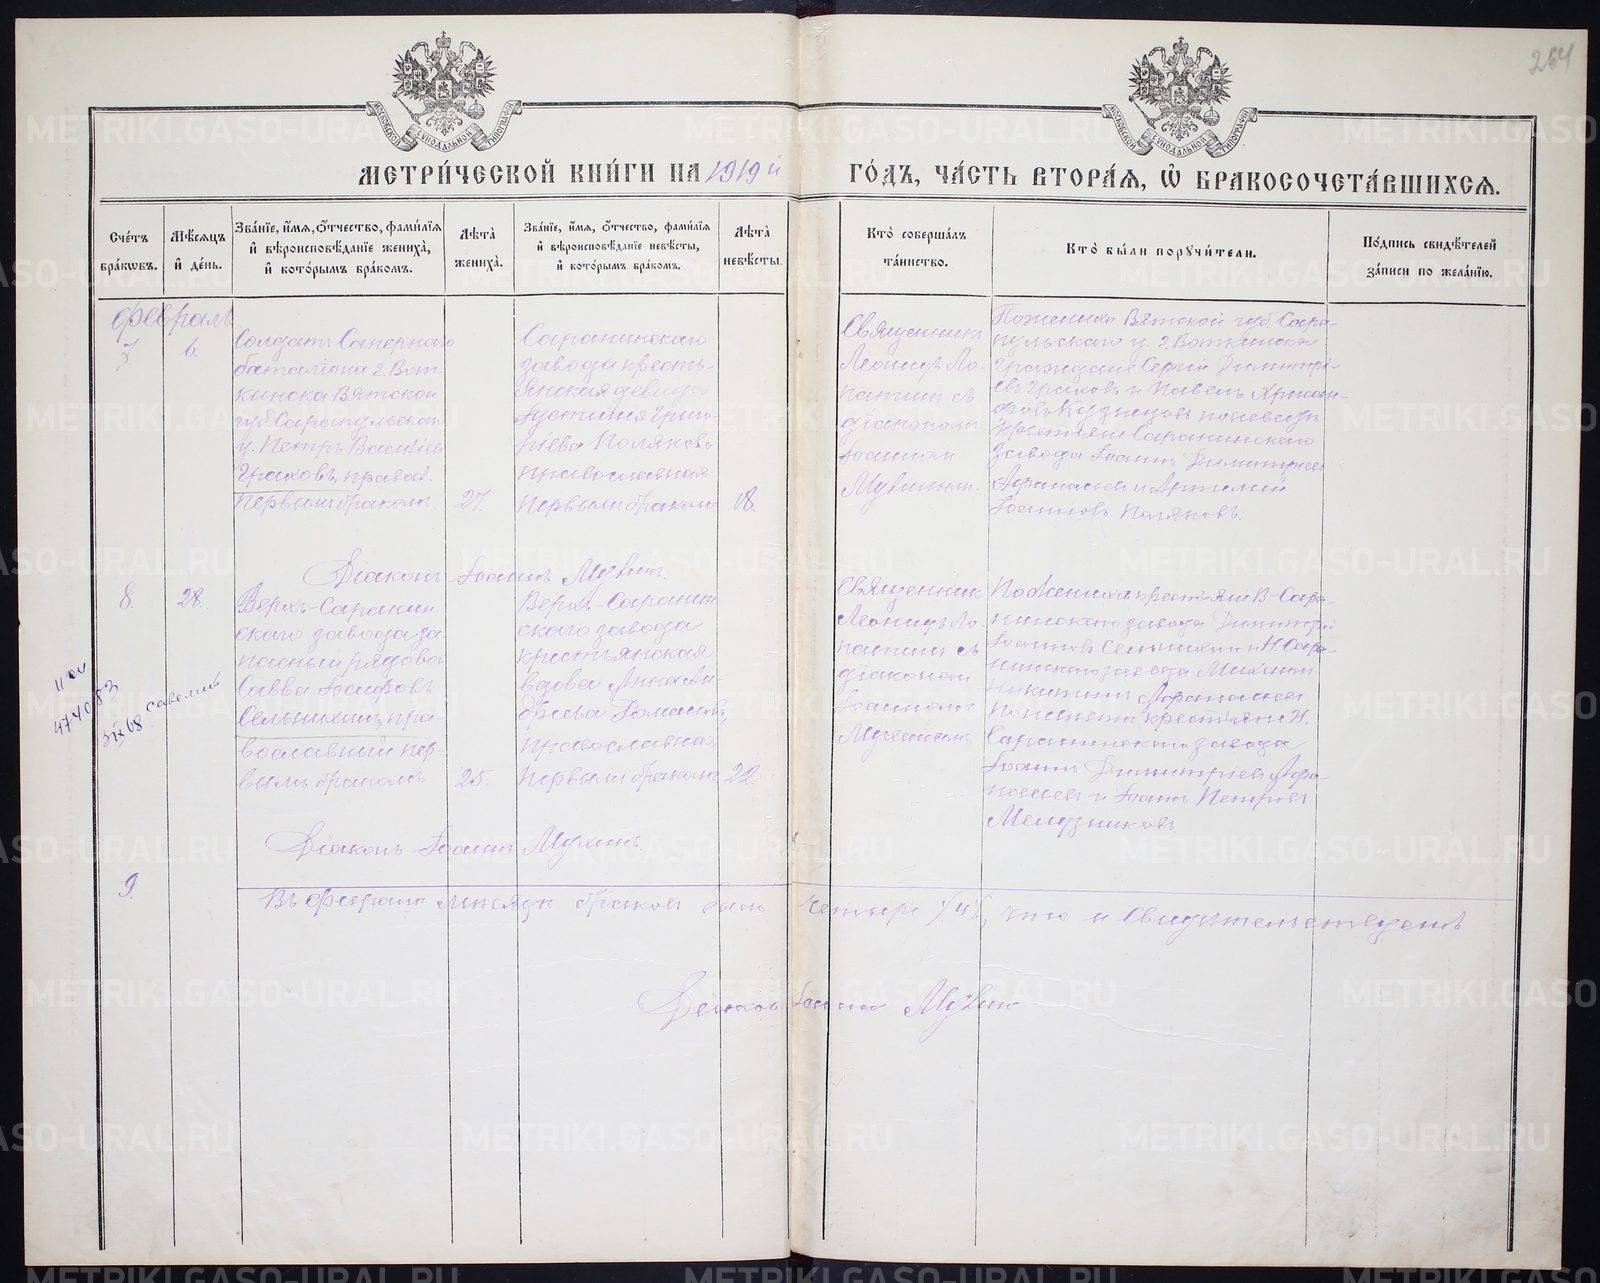 264
МОСКОВСКОЙ СИНОДАЛЬНОЙ ТИПОГРАФИИ
МОСКОВСКОЙ СИНОДАЛЬНОЙ ТИПОГРАФИИ
МЕТРИ́ЧЕСКОЙ КНИ́ГИ НА 1919 й ГО́ДЪ, ЧА́СТЬ ВТОРА́Я, Ѡ҆ БРАКОСОЧЕТА́ВШИХСЯ.
Сче́тъ бра́кѡвъ.
Мѣ́сяцъ и҆ де́нь.
Зва́нїе, и҆́мя, ѻ҆́тчество, фами́лїя
и҆ вѣроисповѣ́данїе жениха̀,
и҆ кото́рымъ бра́комъ.
Лѣ́та̀ жениха̀.
Зва́нїе, и҆́мя, ѻ҆́тчество, фами́лїя
и҆ вѣроисповѣ́данїе невѣ́сты,
и҆ кото́рымъ бра́комъ.
Лѣ́та̀ невѣ́сты.
Кто̀ соверша́лъ
та́инство.
Кто̀ бы́ли порꙋчи́тели.
По́дпись свидѣ́телей
за́писи по жела́нїю.
Февраль
7.
6.
Солдатъ Сапернаго
баталіона г. Вот-
кинска Вятской
губ. Сарапульскаго
у. Петръ Васильев
Граховъ, правосл.
Первымъ бракомъ.
27.
Саранинскаго
завода кресть-
янская девица
Іустинія Григо-
рьева Полякова
православная
Первымъ бракомъ
18.
Священникъ
Леонидъ Ло-
патинъ съ
діакономъ
Іоанномъ
Мухинымъ.
По женихѣ Вятской губ. Сара-
пульскаго у. г. Воткинска
Граждане Сергій Димитрі-
евъ Граховъ и Павелъ
Кузнецовъ по невестѣ
крестьяне Саранинскаго
завода Іоаннъ Димитріев
Афанасьев и Артемій
Іоанновъ Поляковъ.
Діаконъ Іоаннъ Мухинъ.
8.
28.
Верхъ-Саранин-
скаго завода за-
пасный рядовой
Савва Іосифовъ
Селынихинъ, пра-
вославный пер-
вымъ бракомъ
25.
Верхъ-Саранин
скаго завода
крестьянская
вдова Анна Ан-
Романова,
православная
Первымъ бракомъ
22.
Священник
Леонидъ Ло-
патинъ съ
діакономъ
Іоанномъ
Мухинымъ.
По женихѣ крестьяне В-Сара-
нинскаго завода Димитрій
Іоанновъ и Н. Сара-
нинскаго завода Михаил
Никитинъ Афанасьев
По невестѣ крестьяне Н.
Саранинскаго завода
Іоаннъ Димитріев Афа-
насьев и Іоаннъ Петровъ
Мельниковъ.
474083
Діаконъ Іоаннъ Мухинъ.
9.
Въ феврале месяце браков было четыре (4), что и свидетельствуемъ
Діакон Іоаннъ Мухин
METRIKI.GASO-URAL.RU